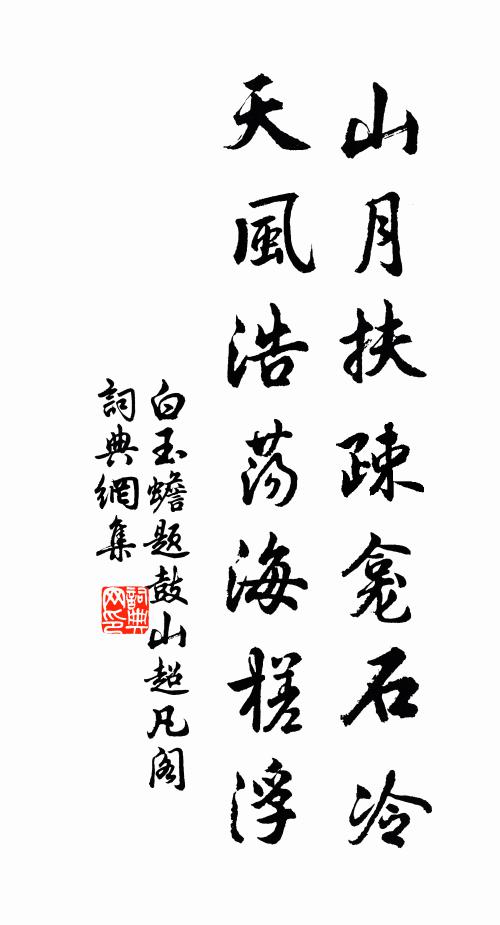 山月扶疎龕石冷
天風浩蕩海槎浮
白玉蟾題鼓山超凡阁
詞典網集
詞典网印